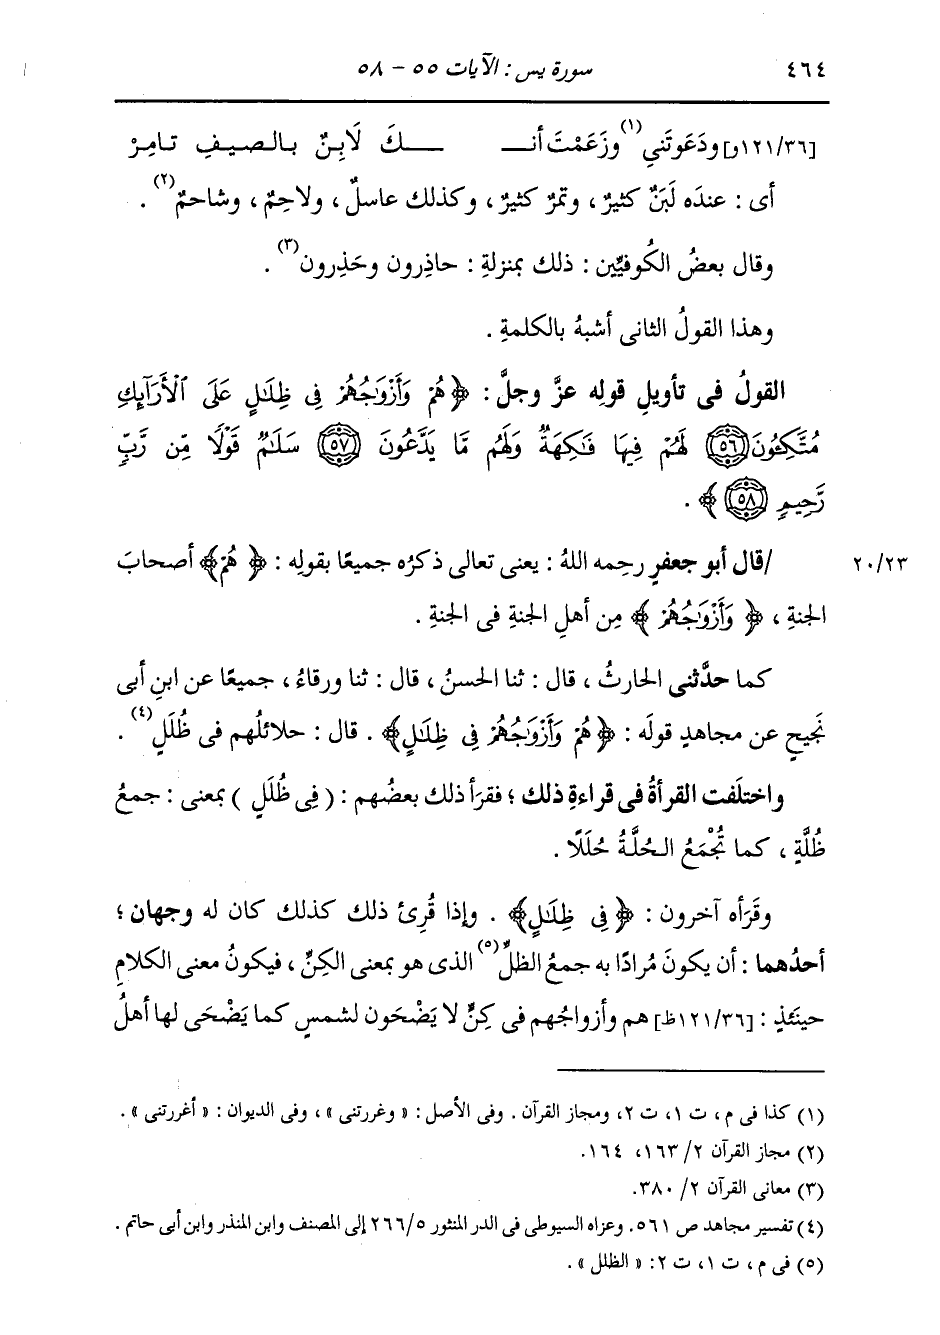 ٤٦٤ سورة يس : الآيات ٥٥ - ٥٨
[١٢١/٣٦و] ودَعَوتَني(١) وزَعَمْتَ أنـــ ـــكَ لَابِنٌ بالصيفِ تامِرْ
أى : عندَه لَبَنٌ كثيرٌ ، وتمرٌ كثيرٌ ، وكذلك عاسلٌ ، ولاحِمٌ ، وشاحمٌ(٢) .
وقال بعضُ الكُوفيِّين : ذلك بمنزلةِ : حاذِرون وحَذِرون(٣) .
وهذا القولُ الثانى أشبهُ بالكلمةِ .
القولُ فى تأويلِ قولِه عزَّ وجلَّ : ﴿ هُمْ وَأَزْوَٰجُهُمْ فِى ظِلَـٰلٍ عَلَى ٱلْأَرَآئِكِ
مُتَّكِـُٔونَ ٥٦ لَهُمْ فِيهَا فَـٰكِهَةٌ وَلَهُم مَّا يَدَّعُونَ ٥٧ سَلَـٰمٌ قَوْلًا مِّن رَّبٍّ
رَّحِيمٍ ٥٨ ﴾ .
٢٠/٢٣ /قال أبو جعفرٍ رحِمه اللهُ : يعنى تعالى ذكرُه جميعًا بقولِه : ﴿ هُمْ ﴾ أصحابَ
الجنةِ ، ﴿ وَأَزْوَٰجُهُمْ ﴾ مِن أهلِ الجنةِ فى الجنةِ .
كما حدَّثنى الحارثُ ، قال : ثنا الحسنُ ، قال : ثنا ورقاءُ ، جميعًا عن ابنِ أبى
نَجيحٍ عن مجاهدٍ قولَه : ﴿ هُمْ وَأَزْوَٰجُهُمْ فِى ظِلَـٰلٍ ﴾ . قال : حلائلُهم فى ظُلَلٍ(٤) .
واختلَفت القرأةُ فى قراءةِ ذلك ؛ فقرَأ ذلك بعضُهم : ( فِى ظُلَلٍ ) بمعنى : جمعُ
ظُلَّةٍ ، كما تُجْمَعُ الحُلَّةُ حُلَلًا .
وقَرَأه آخرون : ﴿ فِى ظِلَـٰلٍ ﴾ . وإذا قُرِئ ذلك كذلك كان له وجهان ؛
أحدُهما : أن يكونَ مُرادًا به جمعُ الظلِّ(٥) الذى هو بمعنى الكِنِّ ، فيكونُ معنى الكلامِ
حينَئذٍ : [١٢١/٣٦ظ] هم وأزواجُهم فى كِنٍّ لا يَضْحَون لشمسٍ كما يَضْحَى لها أهلُ
(١) كذا فى م ، ت ١ ، ت ٢ ، ومجاز القرآن . وفى الأصل : « وغررتنى » ، وفى الديوان : « أغررتنى » .
(٢) مجاز القرآن ٢/ ١٦٣، ١٦٤.
(٣) معانى القرآن ٢/ ٣٨٠.
(٤) تفسير مجاهد ص ٥٦١. وعزاه السيوطى فى الدر المنثور ٢٦٦/٥ إلى المصنف وابن المنذر وابن أبى حاتم .
(٥) فى م ، ت ١، ت ٢: « الظلل » .